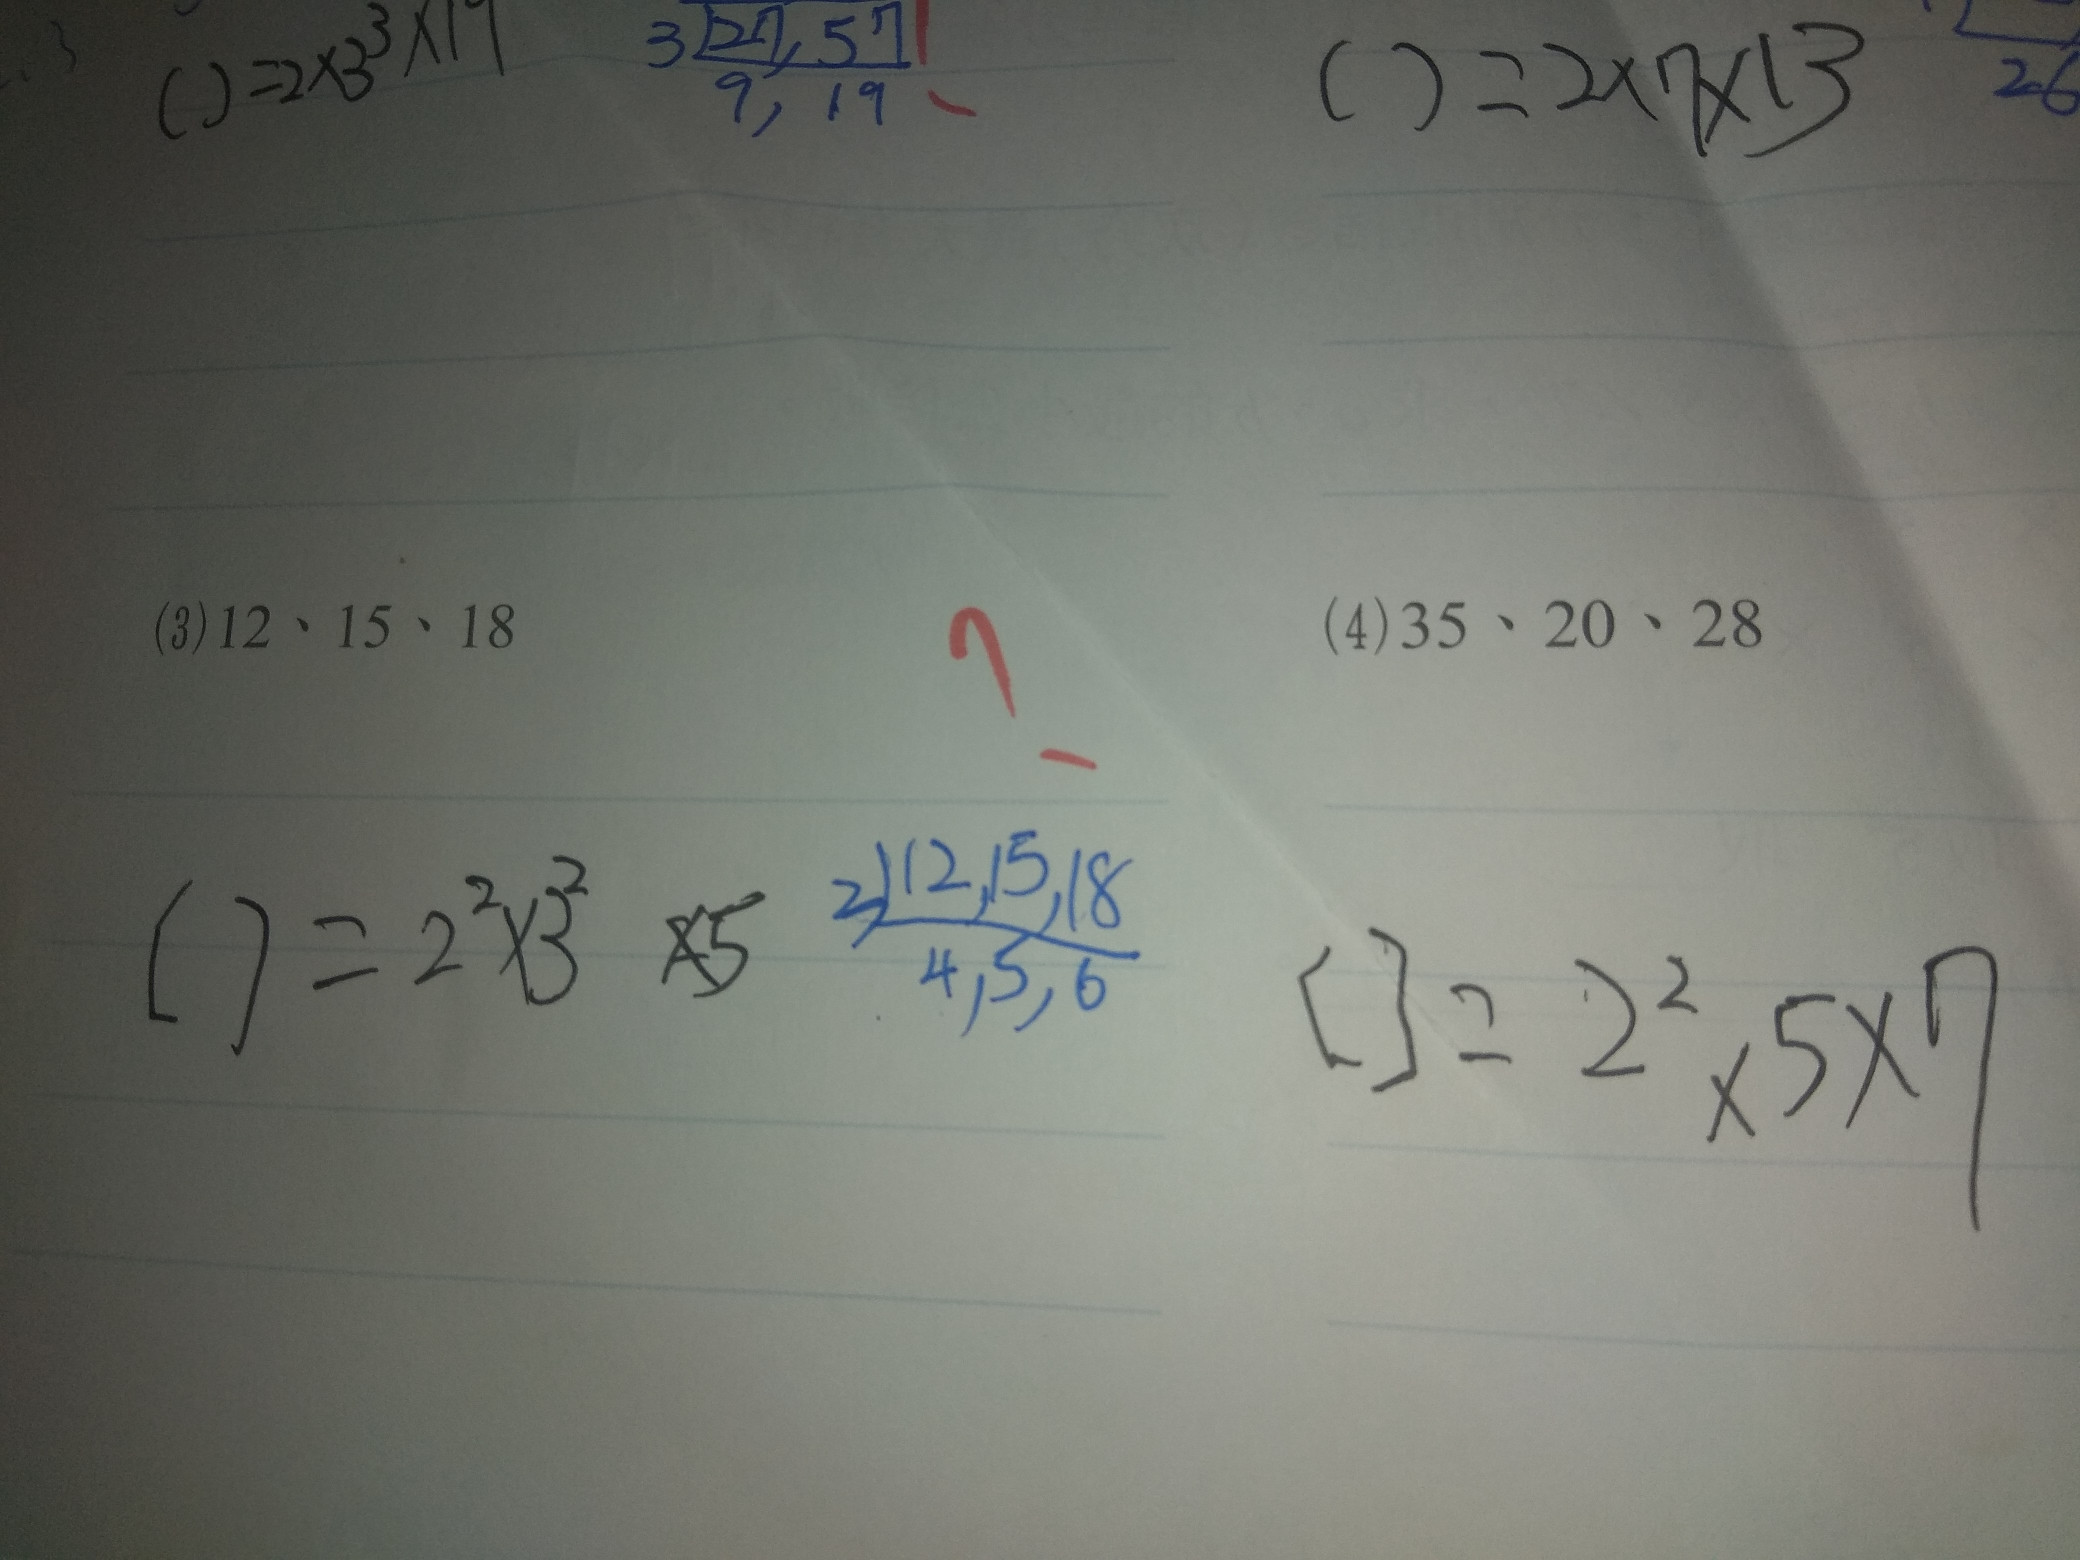 ( ) = 2×3³×19
3 27, 57
9, 19
( ) = 2×7×13
26
(3)12、15、18
(4)35、20、28
[ ] = 2²×3² ×5
2 12, 15, 18
4, 5, 6
[ ] = 2²×5×7